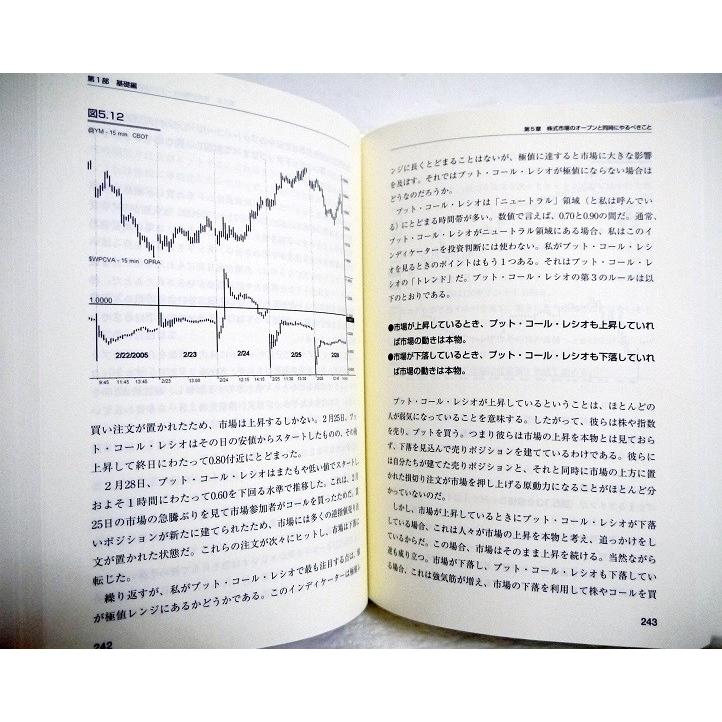 第1部 基礎編
図5.12
@YM - 15 min CBOT
$WPCVA - 15 min OPRA
1.0000
2/22/2005 2/23 2/24 2/25 2/28
9:45 11:45 13:45 2/23 13:00 2/24 12:15 14:15 2/25 11:30 13:30
買い注文が置かれたため、市場は上昇するしかない。2月25日、プッ
ト・コール・レシオはその日の安値からスタートしたものの、その後
上昇して終日にわたって0.80付近にとどまった。
2月28日、プット・コール・レシオはまたもや低い値でスタートし
およそ1時間にわたって0.60を下回る水準で推移した。これは、2月
25日の市場の急騰ぶりを見て市場参加者がコールを買ったためだ。買
いポジションが新たに建てられたため、市場には多くの逆指値売り
文が置かれた状態だ。これらの注文が次々にヒットし、市場は下落に
転じた。
繰り返すが、私がプット・コール・レシオで最も注目する点は、
が極値レンジにあるかどうかである。このインディケーターは極値レ
242
第5章 株式市場のオープンと同時にやるべきこと
ンジに長くとどまることはないが、極値に達すると市場に大きな影響
を及ぼす。それではプット・コール・レシオが極値にならない場合は
どうなのだろうか。
プット・コール・レシオは「ニュートラル」領域（と私は呼んでい
る）にとどまる時間帯が多い。数値で言えば、0.70と0.90の間だ。通常、
プット・コール・レシオがニュートラル領域にある場合、私はこのイ
ンディケーターを投資判断には使わない。私がプット・コール・レシ
オを見るときのポイントはもう1つある。それはプット・コール・レシ
オの「トレンド」だ。プット・コール・レシオの第3のルールは以
下のとおりである。
●市場が上昇しているとき、プット・コール・レシオも上昇していれ
ば市場の動きは本物。
●市場が下落しているとき、プット・コール・レシオも下落していれ
ば市場の動きは本物。
プット・コール・レシオが上昇しているということは、ほとんどの
人が弱気になっていることを意味する。したがって、彼らは株や指数
を売り、プットを買う。つまり彼らは市場の上昇を本物とは見ておら
ず、下落を見込んで売りポジションを建てているわけである。彼らに
は自分たちが建てた売りポジションと、それと同時に市場の上方に置
かれた損切り注文が市場を押し上げる原動力になることがほとんど分
かっていないのだ。
しかし、市場が上昇しているときにプット・コール・レシオが下落
している場合、これは人々が市場の上昇を本物と考え、追っかけをし
ているからだ。この場合、市場はそのまま上昇を続ける。当然ながら
逆も成り立つ。市場が下落し、プット・コール・レシオも下落してい
る場合、これは強気筋が増え、市場の下落を利用して株やコールを買
243